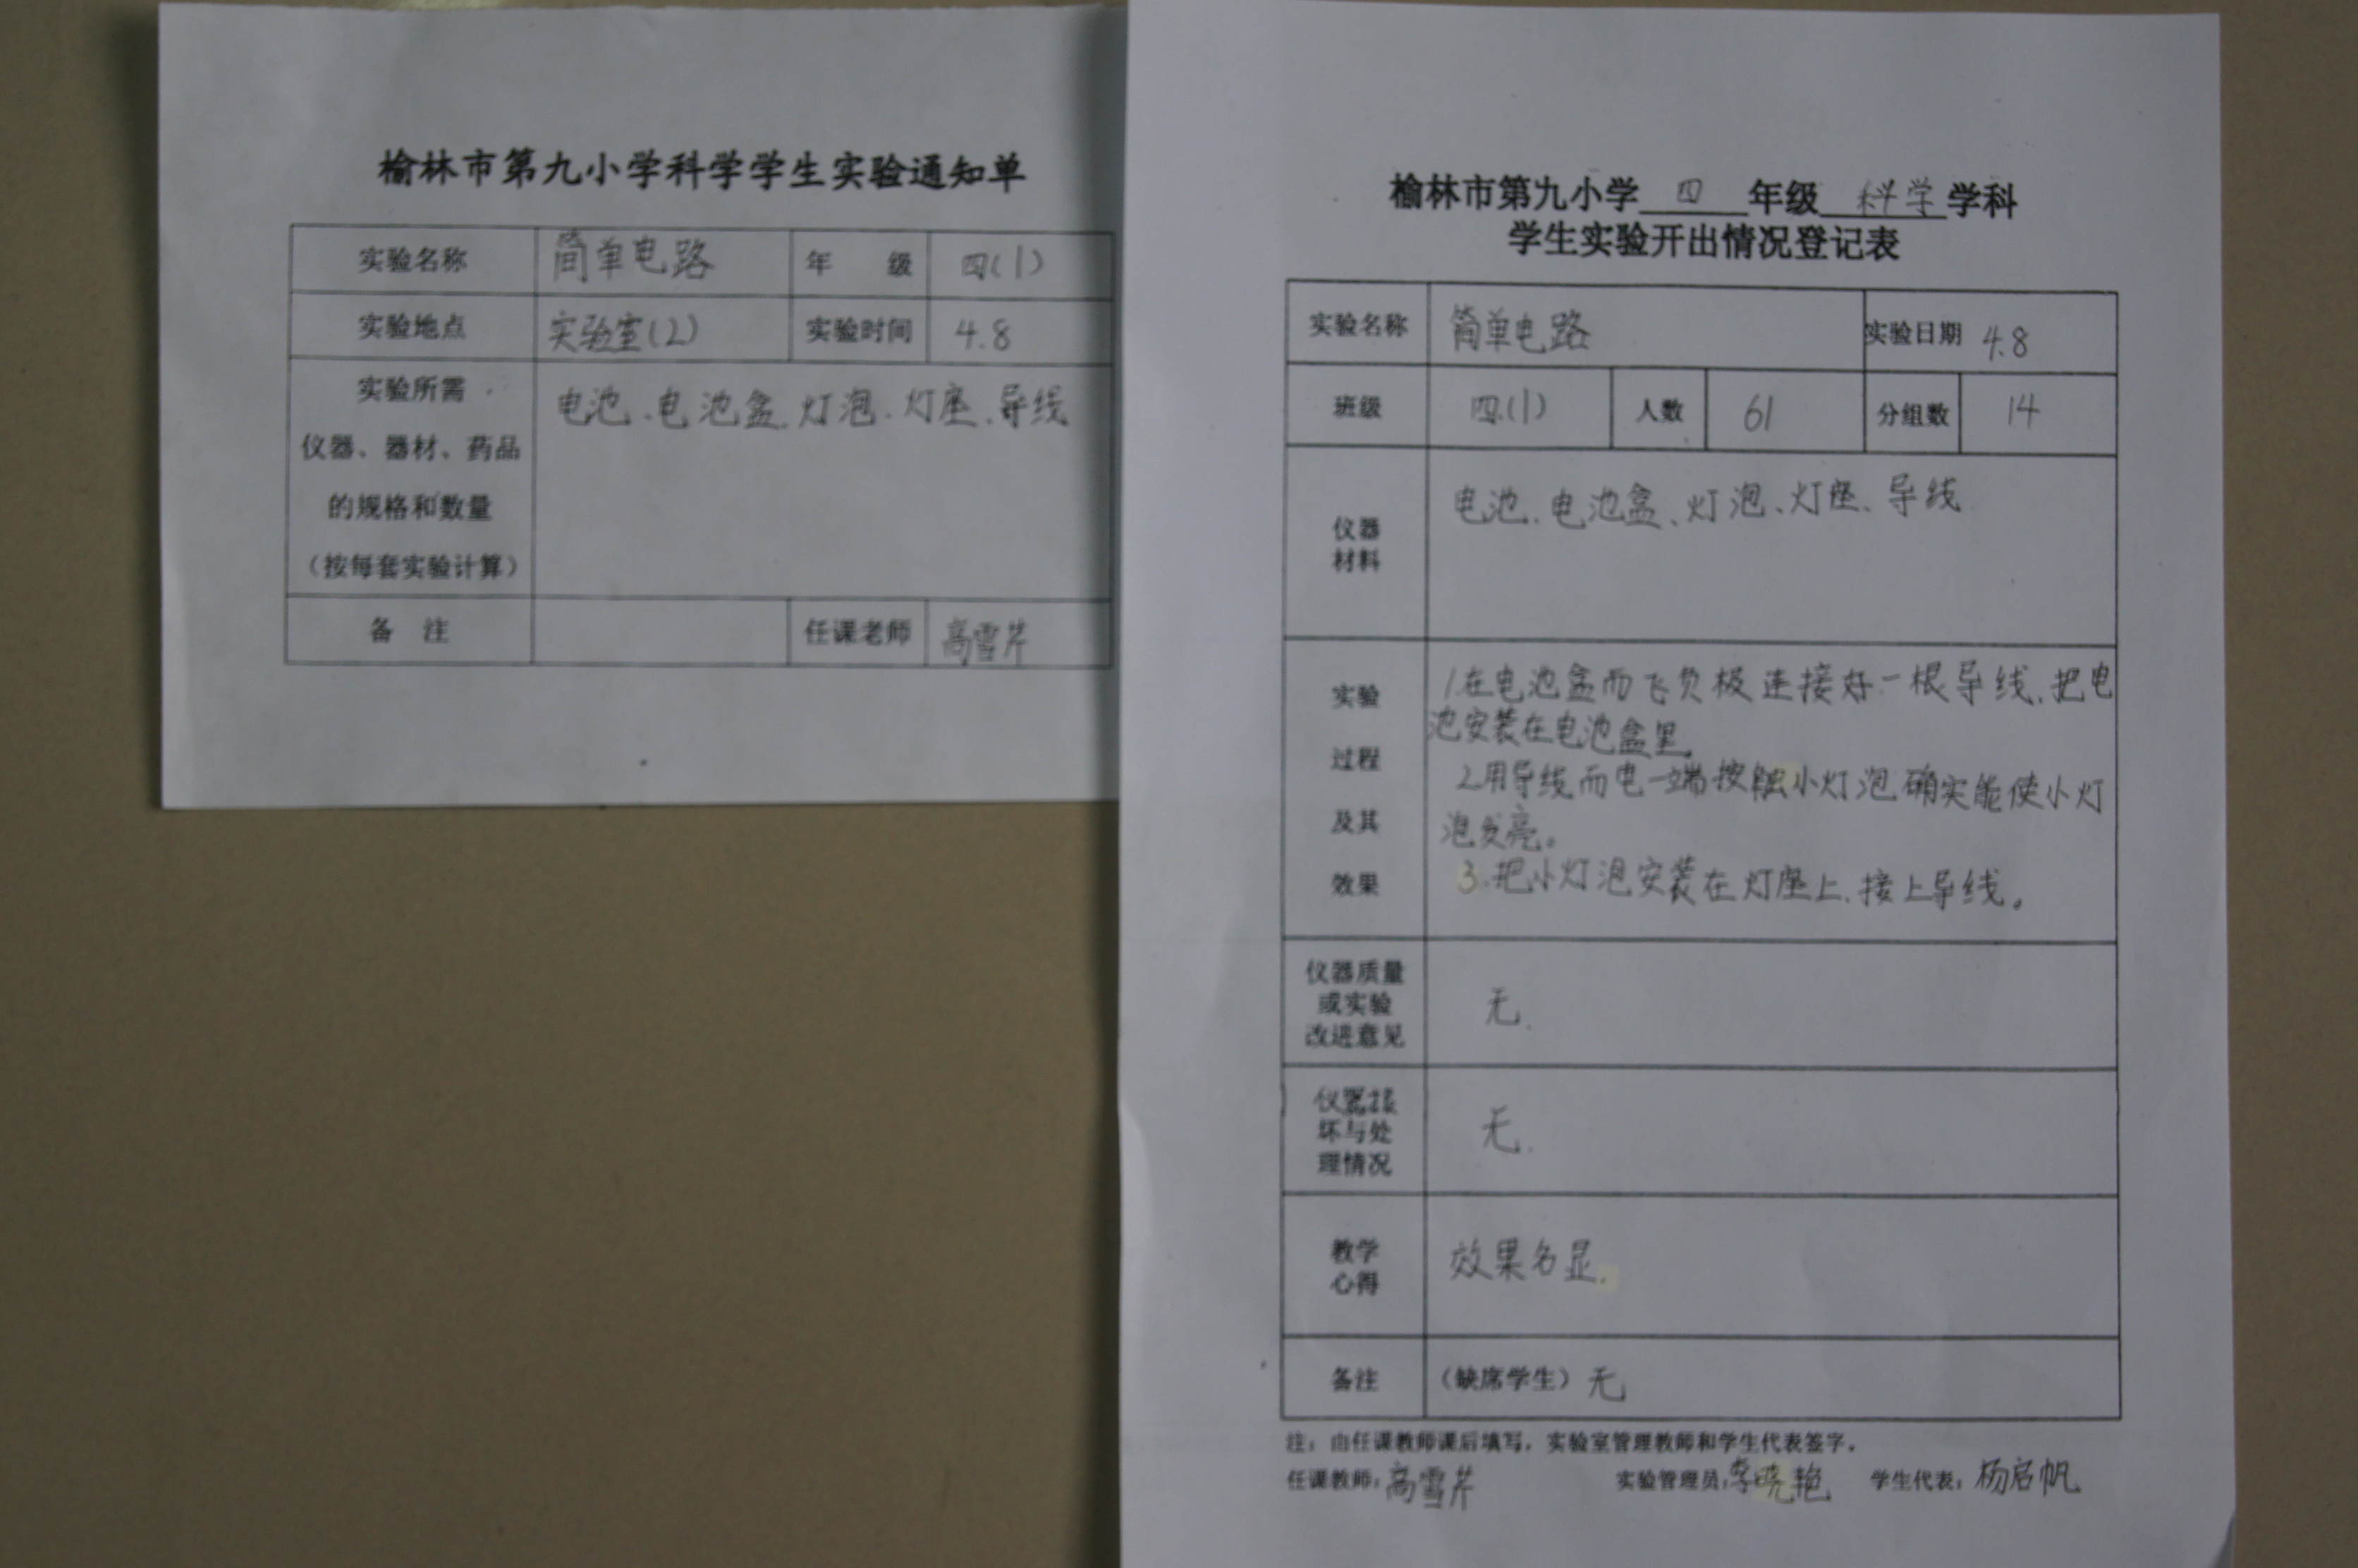 榆林市第九小学科学学生实验通知单
实验名称 简单电路 年 级 四(1)
实验地点 实验室(2) 实验时间 4.8
实验所需
仪器、器材、药品
的规格和数量
(按每套实验计算)
电池、电池盒、灯泡、灯座、导线
备 注 任课老师 高雪芹
榆林市第九小学 四 年级 科学 学科
学生实验开出情况登记表
实验名称 简单电路 实验日期 4.8
班级 四(1) 人数 61 分组数 14
仪器
材料
电池、电池盒、灯泡、灯座、导线
实验
过程
及其
效果
1.在电池盒而飞负极连接好一根导线,把电
池安装在电池盒里。
2.用导线而电一端按触小灯泡确实能使小灯
泡发亮。
3.把小灯泡安装在灯座上,接上导线。
仪器质量
或实验
改进意见
无.
仪器损
坏与处
理情况
无.
教学
心得
效果名显.
备注 (缺席学生) 无
注:由任课教师课后填写,实验室管理教师和学生代表签字。
任课教师:高雪芹 实验管理员:李晓艳 学生代表:杨启帆